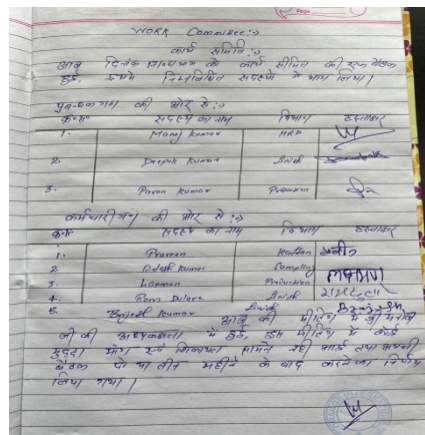 WORK Committee:->
कार्य समिति :->
आज दिनांक को कार्य समिति की एक बैठक
हुई, इसमें निम्नलिखित सदस्यों ने भाग लिया।
प्रबन्धक गण की ओर से :->
क्र०सं० सदस्य का नाम विभाग हस्ताक्षर
1. Manoj Kumar HRD
2. Deepak Kumar Finish
3. Pavan Kumar Production
कर्मचारी गण की ओर से :->
क्र०सं० सदस्य का नाम विभाग हस्ताक्षर
1. Praveen प्रवीन
2 Dilesh Kumar Sampling
3. Laxman Production लक्ष्मण
4. Ram Dulare Finish रामदुलारे
5. Brijesh Kumar Finish
आज की मीटिंग श्री मनोज
जी की अध्यक्षता में हुई, इस मीटिंग में कोई
मुद्दा मांग एवं शिकायत सामने नहीं आई तथा अगली
बैठक दो या तीन महीने के बाद करने का निर्णय
लिया गया।